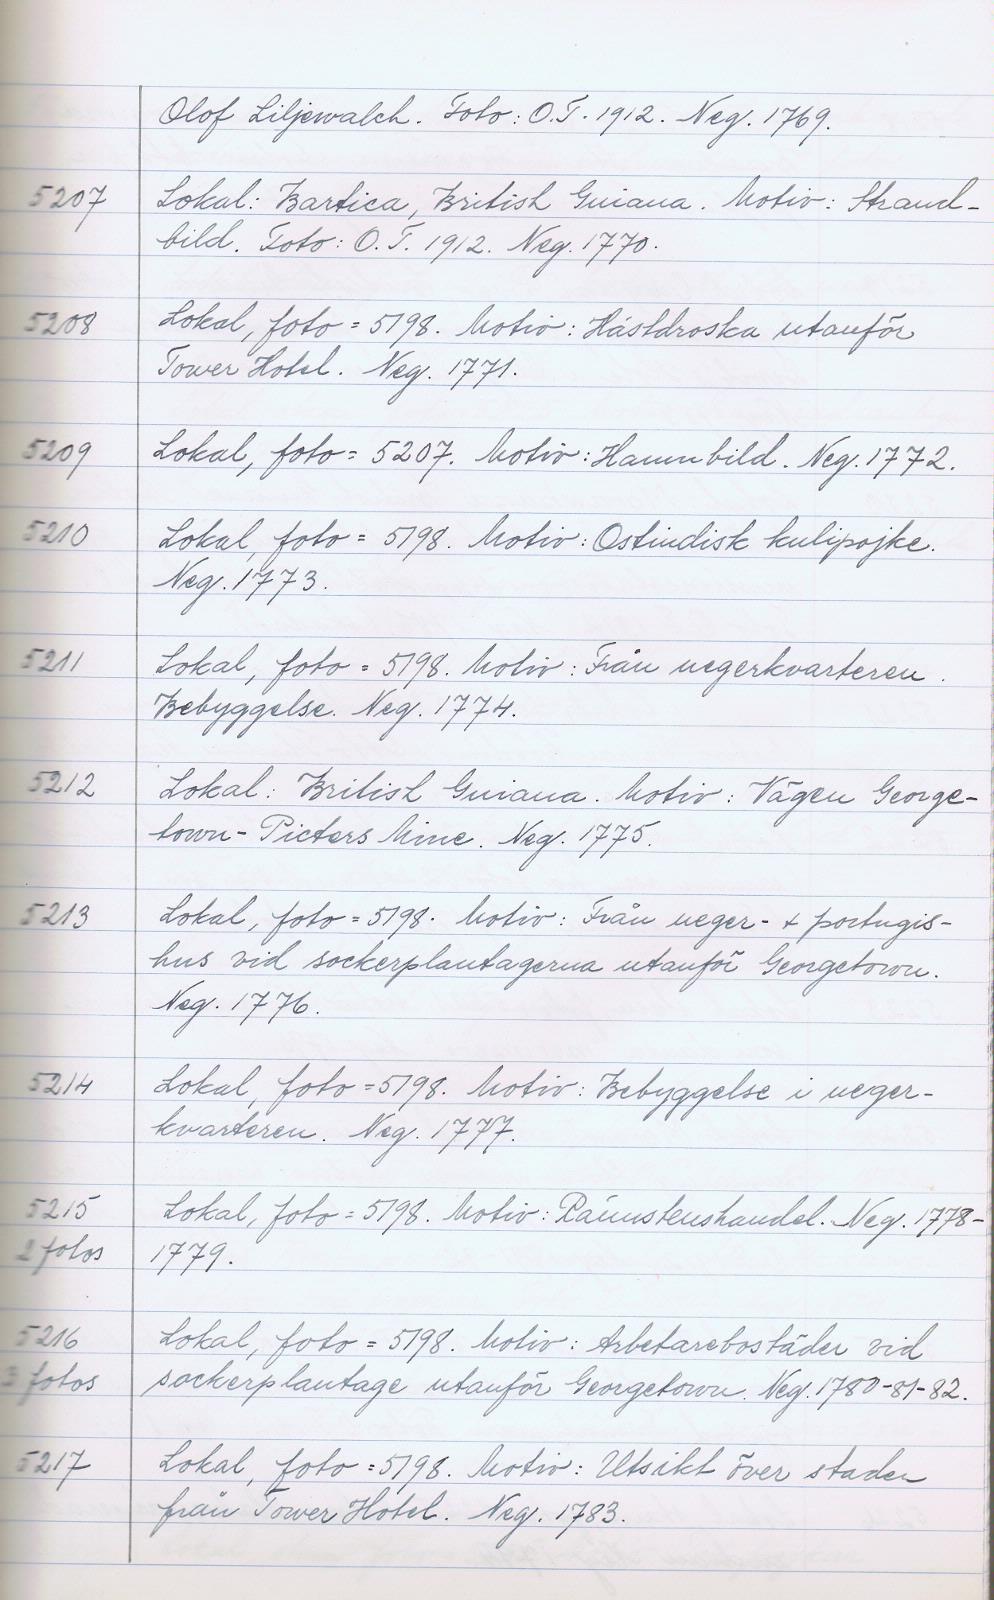 Olof Liljewalch. Foto: O.T. 1912. Neg. 1769.
5207 Lokal: Bartica, British Guiana. Motiv: Strand-
bild. Foto: O.T. 1912. Neg. 1770.
5208 Lokal, foto = 5198. Motiv: Hästdroska utanför
Tower Hotel. Neg. 1771.
5209 Lokal, foto = 5207. Motiv: Hamnbild. Neg. 1772.
5210 Lokal, foto = 5198. Motiv: Ostindisk kulipojke.
Neg. 1773.
5211 Lokal, foto = 5198. Motiv: Från negerkvarteren.
Bebyggelse. Neg. 1774.
5212 Lokal: British Guiana. Motiv: Vägen George-
town- Pieters Mine. Neg. 1775.
5213 Lokal, foto = 5198. Motiv: Från neger- + portugis-
hus vid sockerplantagerna utanför Georgetown.
Neg. 1776.
5214 Lokal, foto = 5198. Motiv: Bebyggelse i neger-
kvarteren. Neg. 1777.
5215 Lokal, foto = 5198. Motiv: Rännstenshandel. Neg. 1778-
2 fotos 1779.
5216 Lokal, foto = 5198. Motiv: Arbetarebostäder vid
3 fotos sockerplantage utanför Georgetown. Neg. 1780-81-82.
5217 Lokal, foto = 5198. Motiv: Utsikt över staden
från Tower Hotel. Neg. 1783.